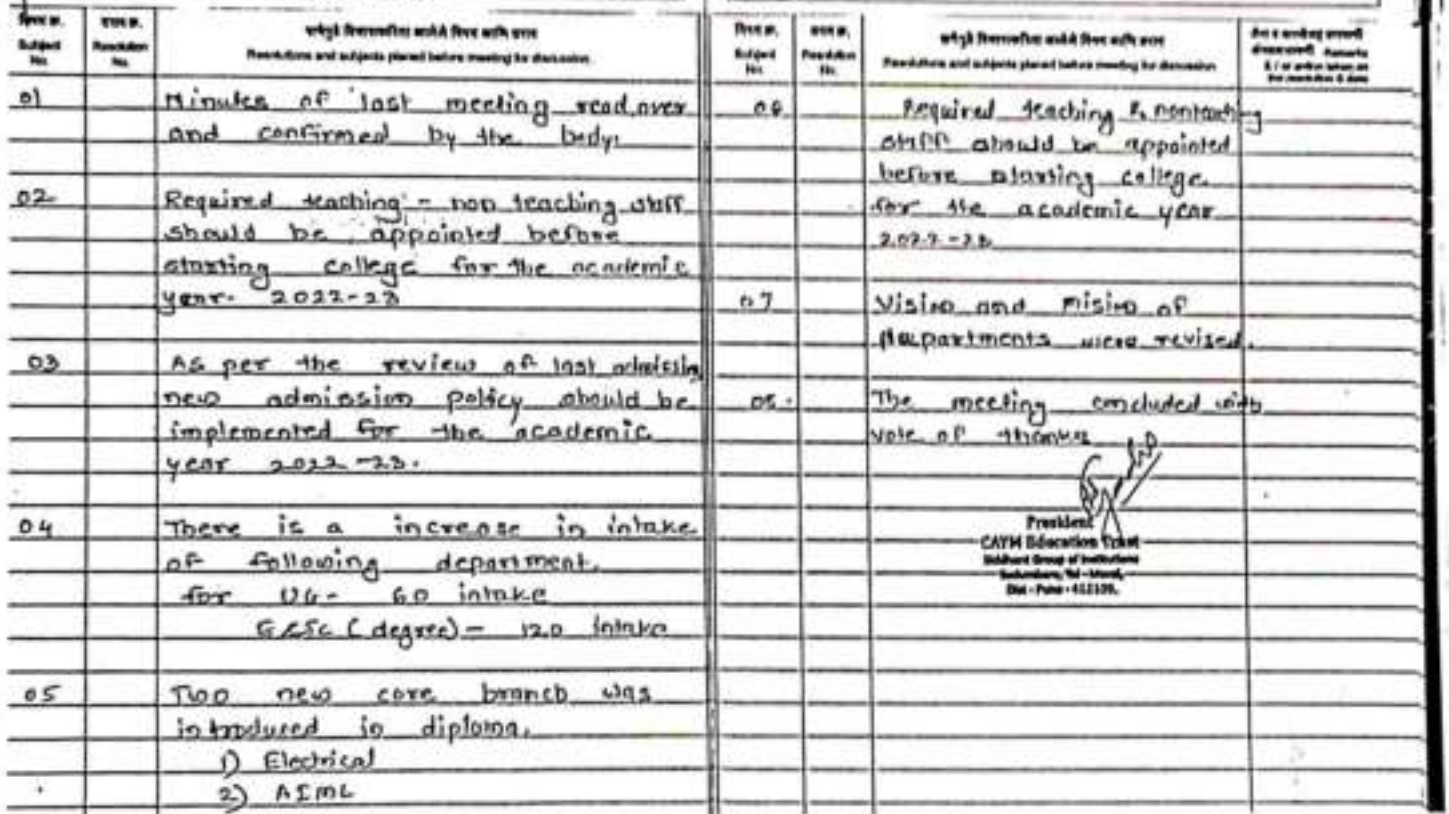 Subject No.
Resolution No.
Resolutions and subjects placed before meeting for discussion
01 Minutes of last meeting read over
and confirmed by the body.
02 Required teaching - non teaching staff
should be appointed before
starting college for the academic
year- 2022-23
03 As per the review of last
new admission policy should be
implemented for the academic
year 2022-23.
04 There is a increase in intake
of following department.
for UG- 60 intake
(degree) - 120 intake
05 Two new core branch was
introduced in diploma.
1) Electrical
2) AIML
Subject No.
Resolution No.
Resolutions and subjects placed before meeting for discussion
Remarks
& / or action taken on
the resolution & date
06 Required teaching & nonteaching
staff should be appointed
before starting college
for the academic year
2022-23
07 Vision and Mision of
departments were revised.
The meeting concluded with
vote of thanks
President
CAYM Education Trust
Siddhant Group of Institutions
Sudumbare, Tal - Maval,
Dist - Pune - 412109.